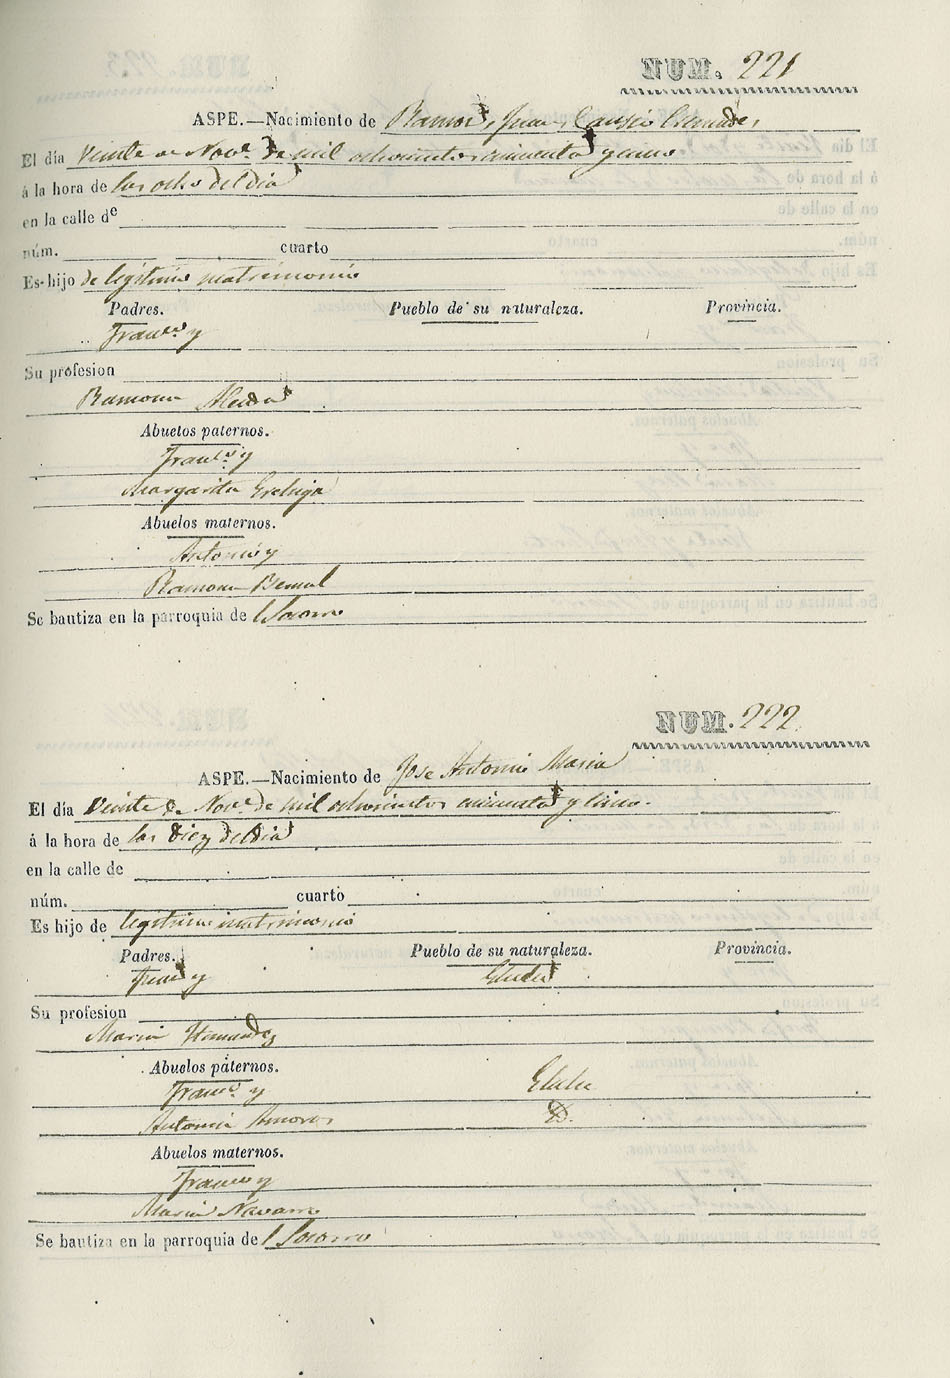 NUM. 221
ASPE.—Nacimiento de Ramon, Juan, Cremades
El día Veinte de Nov.e de mil ochocientos cincuenta y cinco
á la hora de las ocho del dia
en la calle de
núm. cuarto
Es hijo de legitimo matrimonio
Padres. Pueblo de su naturaleza. Provincia.
Fran.co y
Su profesion
Ramona
Abuelos paternos.
Fran.co y
Margarita
Abuelos maternos.
Antonio y
Ramona Bernal
Se bautiza en la parroquia de l Socorro
NUM. 222
ASPE.—Nacimiento de Jose Antonio Maria
El día Veinte de Nov.e de mil ochocientos cincuenta y cinco.
á la hora de las Diez del Dia
en la calle de
núm. cuarto
Es hijo de legitimo matrimonio
Padres. Pueblo de su naturaleza. Provincia.
Fran.co y Elche
Su profesion
Maria Hernandez
Abuelos paternos.
Fran.co y Elche
Antonia Amoros
Abuelos maternos.
Fran.co y
Maria Navarro
Se bautiza en la parroquia de l Socorro